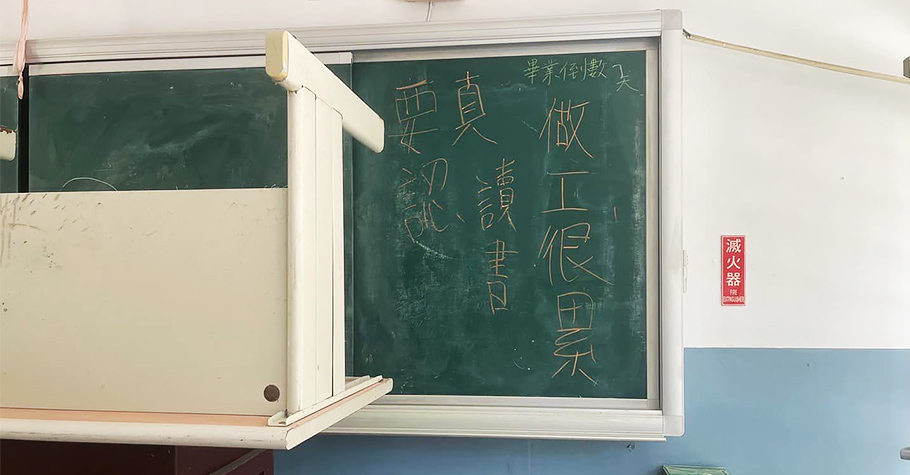 畢業倒數7天
做工很累
要認
真讀書
滅火器
FIRE
EXTINGUISHER